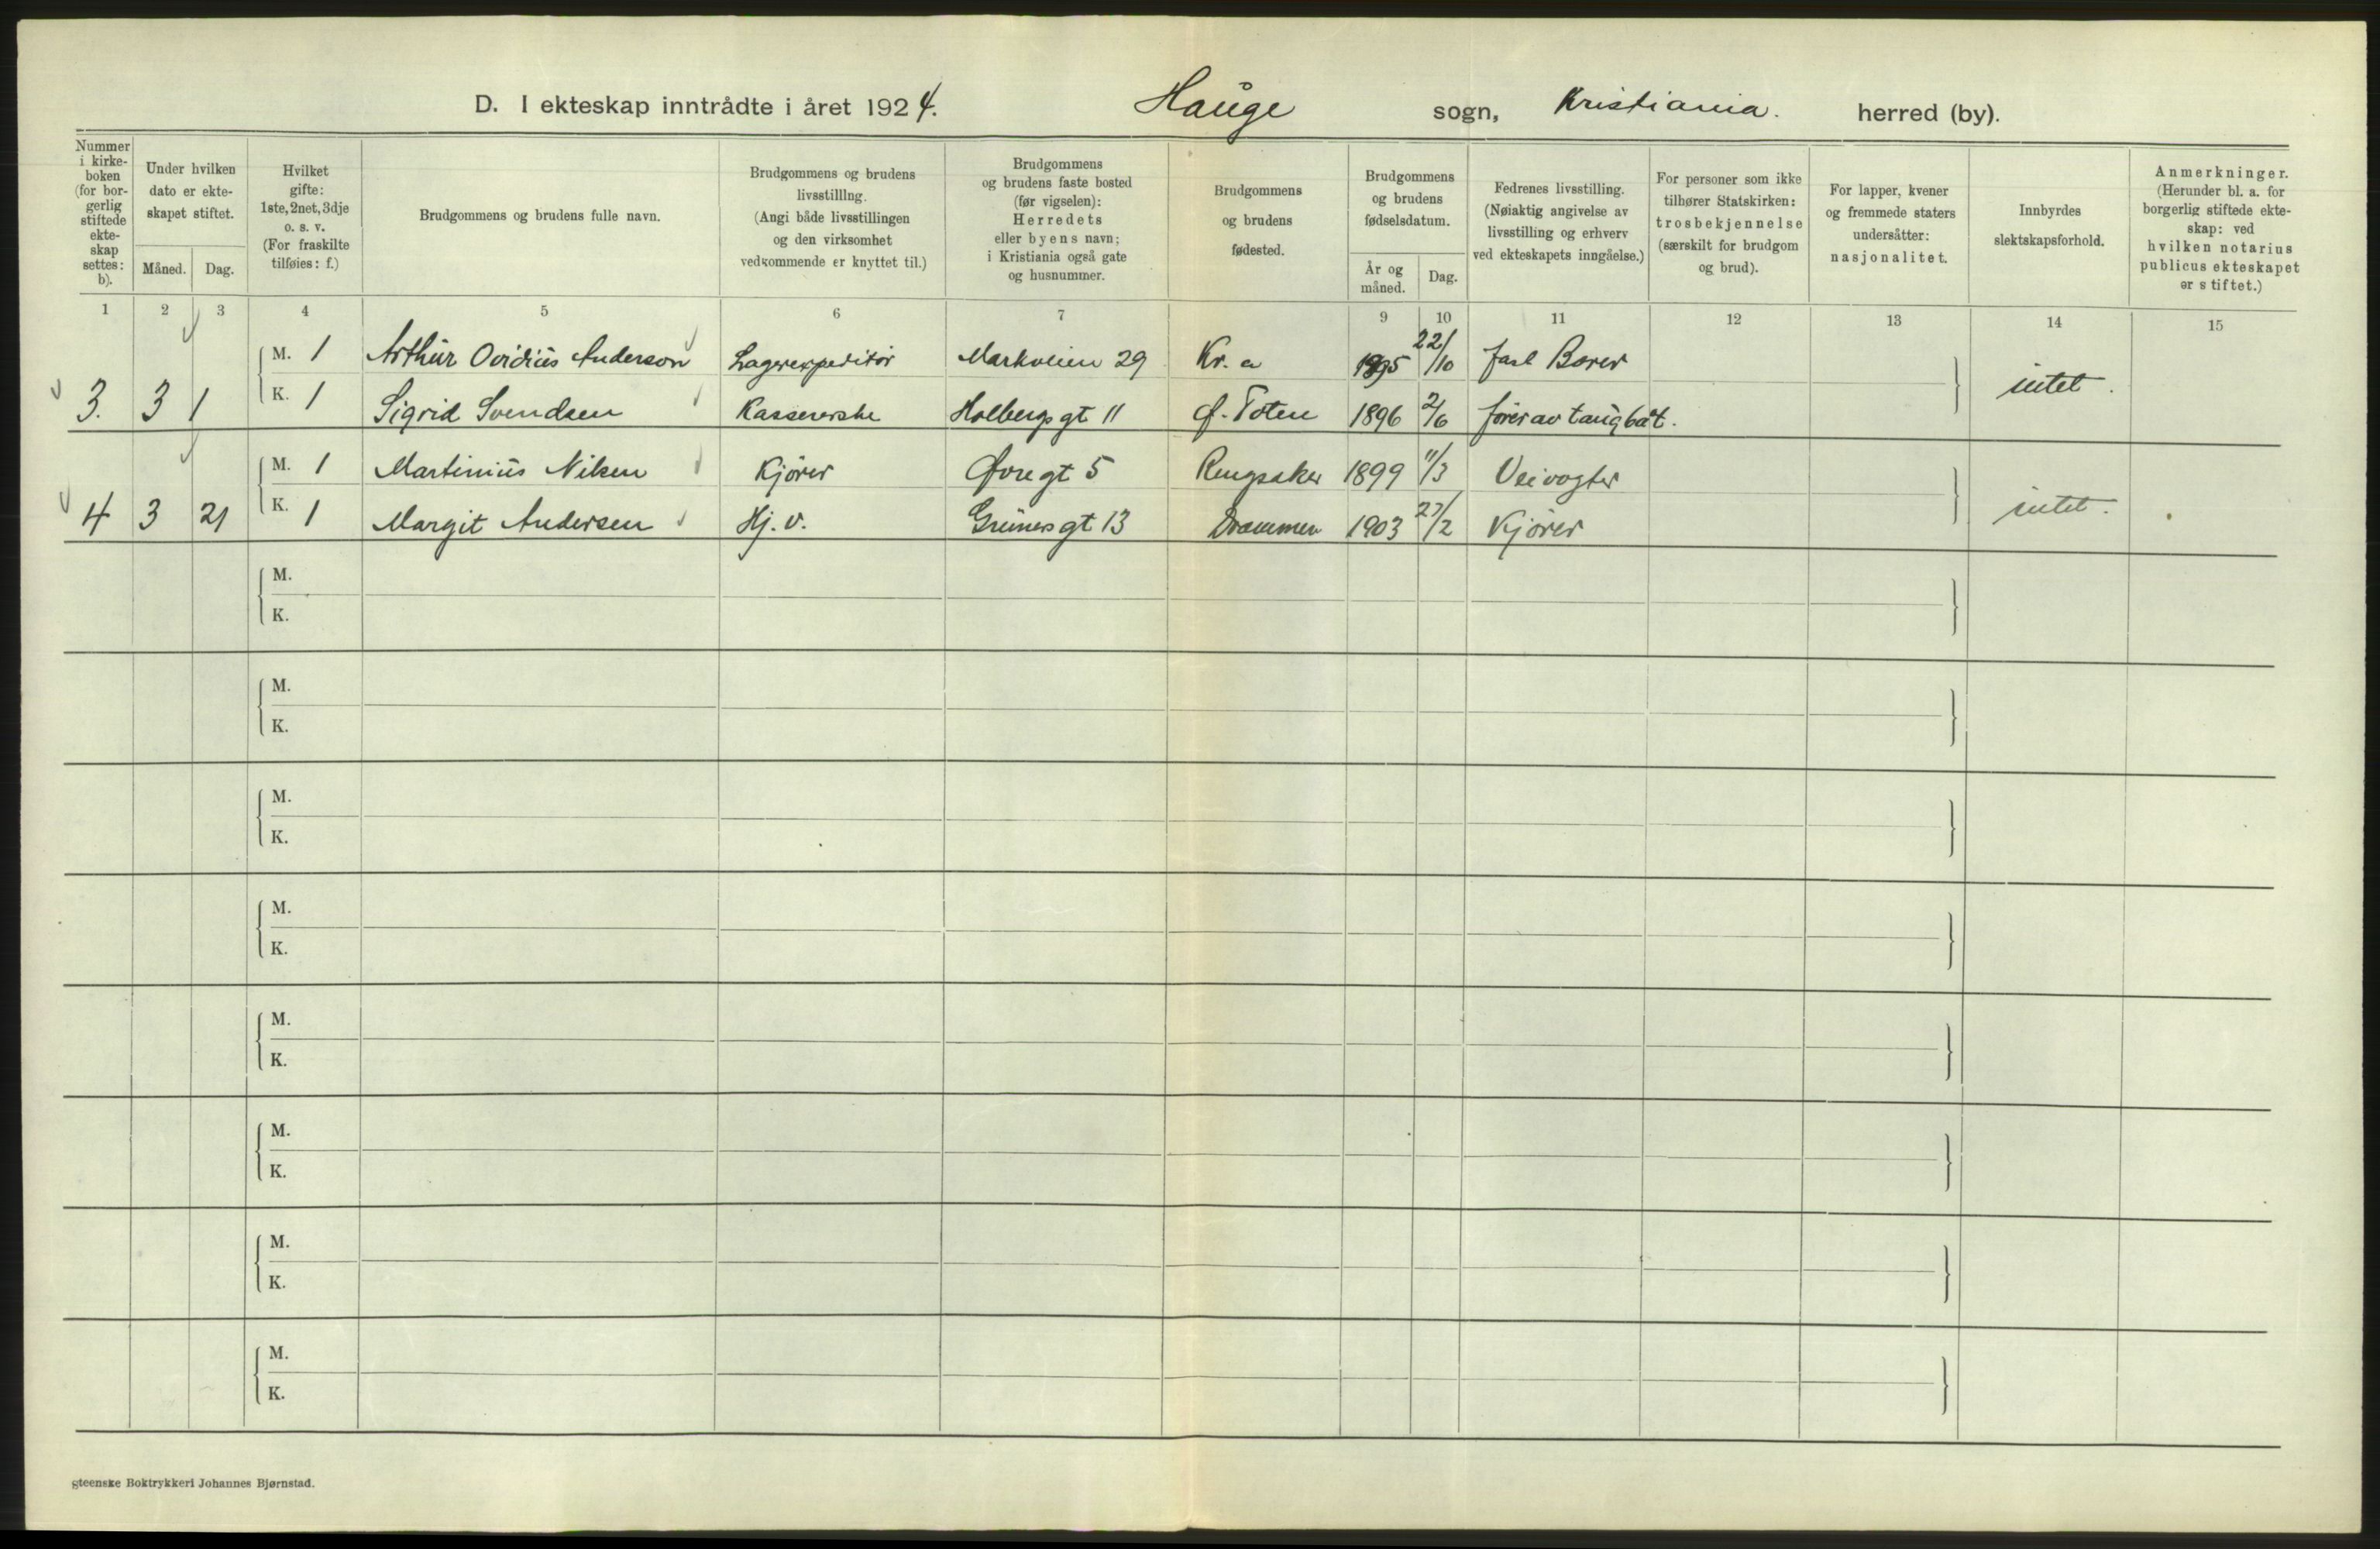 D. I ekteskap inntrådte i året 1924. Hauge sogn, Kristiania. herred (by).
Nummer i kirke- boken (for bor- gerlig stiftede ekte- skap settes: b).
Under hvilken dato er ekte- skapet stiftet.
Måned. Dag.
Hvilket gifte: 1ste, 2net, 3dje o. s. v. (For fraskilte tilføies: f.)
Brudgommens og brudens fulle navn.
Brudgommens og brudens livsstilllng. (Angi både livsstillingen og den virksomhet vedkommende er knyttet til.)
Brudgommens og brudens faste bosted (før vigselen): Herredets eller byens navn; i Kristiania også gate og husnummer.
Brudgommens og brudens fødested.
Brudgommens og brudens fødselsdatum.
År og måned. Dag.
Fedrenes livsstilling. (Nøiaktig angivelse av livsstilling og erhverv ved ekteskapets inngåelse.)
For personer som ikke tilhører Statskirken: trosbekjennelse (særskilt for brudgom og brud).
For lapper, kvener og fremmede staters undersåtter: nasjonalitet.
Innbyrdes slektskapsforhold.
Anmerkninger. (Herunder bl. a. for borgerlig stiftede ekte- skap: ved hvilken notarius publicus ekteskapet er stiftet.)
1 2 3 4 5 6 7 9 10 11 12 13 14 15
M. 1 Arthur Ovidius Anderson Lagerexpeditör Markveien 29 Kr. a 1895 22/10
3. 3 1 K. 1 Sigrid Svendsen Kassererske Holbergs gt 11 Ø. Toten 1896 2/6 fører av taugbåt. intet.
M. 1 Martinius Nilsen Kjører Øvregt 5 Ringsaker 1899 11/3 Veivogter
4 3 21 K. 1 Margit Andersen Hj. v. Grünersgt 13 Drammen 1903 27/2 Kjører intet.
M.
K.
M.
K.
M.
K.
M.
K.
M.
K.
M.
K.
M.
K.
M.
K.
gteenske Boktrykkeri Johannes Bjørnstad.